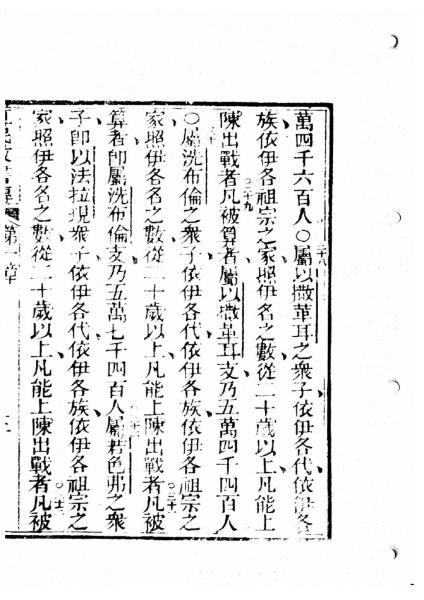 萬四千六百人○屬以撒革耳之衆子依伊各代依伊各
族依伊各祖宗之家照伊各名之數從二十歲以上凡能上
陳出戰者凡被算者屬以撒革耳支乃五萬四千四百人
○二十九
○屬洗布倫之衆子依伊各代依伊各族依伊各祖宗之
家照伊各名之數從二十歲以上凡能上陳出戰者凡被
算者即屬洗布倫支乃五萬七千四百人屬若色弗之衆
子即以法拉現衆子依伊各代依伊各族依伊各祖宗之
家照伊各名之數從二十歲以上凡能上陳出戰者凡被
第一章